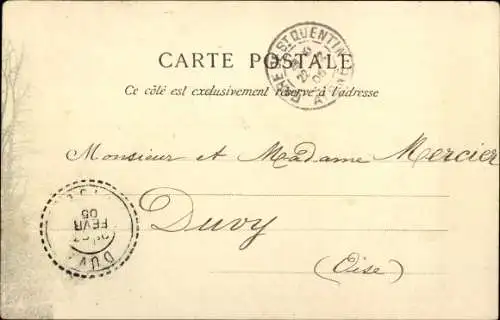 CARTE POSTALE
Ce côté est exclusivement réservé à l'adresse
ST QUENTIN
Monsieur et Madame Mercier
Duvy
(Oise)
FEVR
05
DUVY